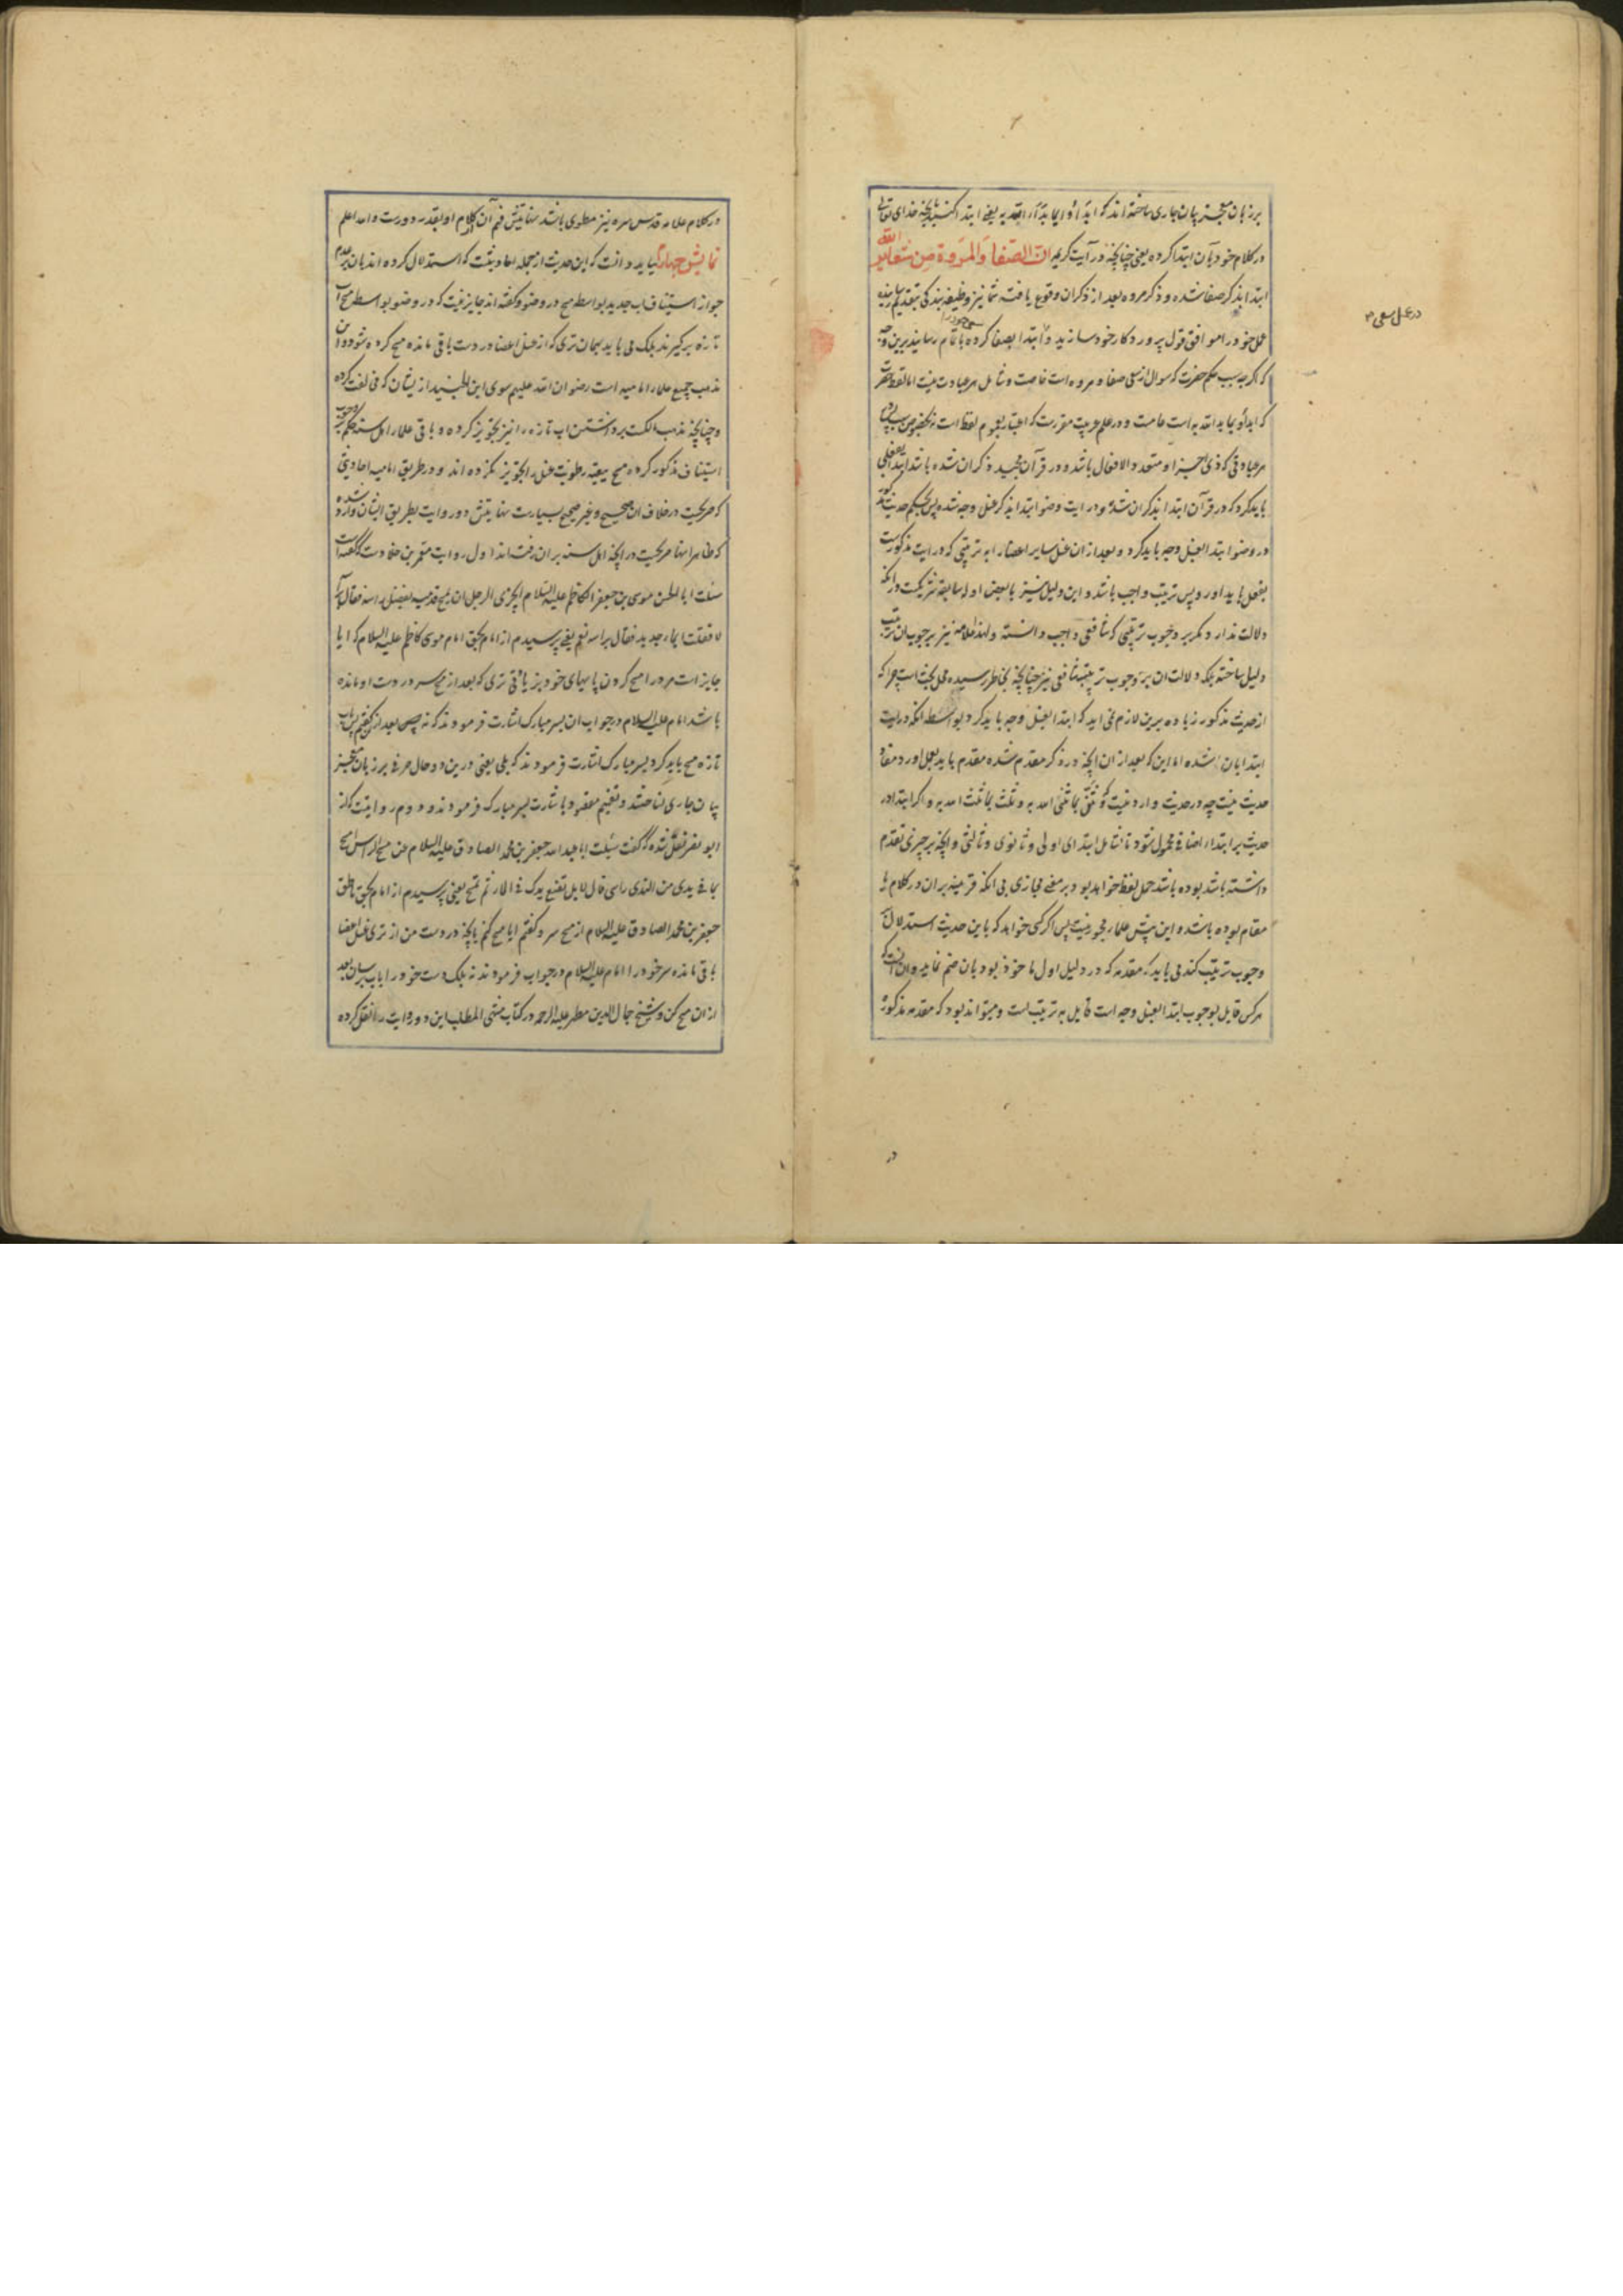 بر زبان معجز بیان جاری ساخته اند که ابدأوا بما بدأ الله به یعنی ابتدا کنید بآنچه خدای تعالی
در کلام خود بآن ابتدا کرده یعنی چنانچه در آیت کریمه ان الصفا والمروة من شعایر الله
ابتدا بذکر صفا شده و ذکر مروه بعد از ذکر ان وقوع یافته شما نیز وظیفه بندگی بتقدیم رسانیده
عمل خود را موافق قول پروردکار خود سازید و ابتدا بصفا کرده باتمام رسانید برین وجه
که اکرچه سبب حکم حضرت که سوال از سعی صفا و مروه است خاصست و شامل هر عبادت نیست اما لفظ حضرت
که ابدأو بما بدا الله به است عامست و در علم عربیت مقررست که اعتبار بعموم لفظ است نه بخصوص سبب
هر عبادتی که ذی اجزا و متعدد الافعال باشد و در قرآن مجید ذکر ان شده باشد ابتدا بفعلی
باید کرد که در قرآن ابتدا بذکر ان شده و در ایت وضو ابتدا بذکر غسل وجه شده پس بحکم حدیث مذکور
در وضو ابتدا بغسل وجه باید کرد و بعد از ان غسل سایر اعضا را به ترتیبی که در ایت مذکورست
بفعل باید اورد پس ترتیب واجب باشد و این دلیل نیز با بعض ادله سابقه شریکست در آنکه
دلالت ندارد مکر بر وجوب ترتیبی که شافعی واجب دانسته و لهذا علامه نیز بر وجوب ان ترتیب
دلیل ساخته بلکه دلالت ان بر وجوب ترتیب شافعی نیز چنانچه بخاطر رسیده محل بحث است چراکه
از حدیث مذکور زیاده برین لازم نمی اید که ابتدا بغسل وجه باید کرد بواسطه انکه در ایت
ابتدا بان شده اما این که بعد از ان انچه در ذکر مقدم شده مقدم باید بعمل اورد مفاد
حدیث نیست چه در حدیث وارد نیست که وثنی بما ثنی الله به و ثلث بما ثلث الله به و اکر ابتدا در
حدیث بر ابتداء اضافی محمول شود تا شامل ابتدای اولی و ثانوی و ثالثی و انچه بر چیزی تقدم
داشته باشد بوده باشد حمل لفظ خواهد بود بر معنی مجازی بی انکه قرینه بر ان در کلام یا
مقام بوده باشد و این پیش علما مجوز نیست پس اکر کسی خواهد که باین حدیث استدلال بر
وجوب ترتیب کند می باید که مقدمه که در دلیل اول ماخوذ بود بان ضم نماید و ان انست که
هر کس قایل بوجوب ابتدا بغسل وجه است قایل به ترتیب است و میتواند بود که مقدمه مذکوره
در عمل سعی
در
در کلام علامه قدس سره نیز مطوی باشد نهایتش فهم آن از کلام او بقدر دورست والله اعلم
نمایش چهارم بباید دانست که این حدیث از جمله احادیثیست که استدلال کرده اند بان بر عدم
جواز استیناف اب جدید بواسطه مسح در وضو و کفته اند جایز نیست که در وضو بواسطه مسح آب
تازه برکیرند بلکه می باید بهمان تری که از غسل اعضا در دست باقی مانده مسح کرده شود و این
مذهب جمیع علماء امامیه است رضوان الله علیهم سوی ابن الجنید از یشان که مخالفت کرده
و چنانچه مذهب مالکست برداشتن اب تازه را نیز تجویز کرده و باقی علماء اهل سنه حکم بوجوب
استیناف مذکور کرده مسح ببقیه رطوبت غسل را تجویز نکرده اند و در طریق امامیه احادیثی
که صریحست در خلاف ان صحیح و غیر صحیح بسیارست نهایتش دو روایت بطریق ایشان وارد شده
که ظاهرا انها صریحست در انچه اهل سنه بران رفته اند اول روایت معمر بن خلادست که کفته است
سئلت ابا الحسن موسی بن جعفر الکاظم علیه السلام ایجزی الرجل ان یمسح قدمیه بفضل راسه فقال براسه
لا فقلت ابماء جدید فقال براسه نعم یعنی پرسیدم از امام بحق امام موسی کاظم علیه السلام که ایا
جایز است مرد را مسح کردن پایهای خود بزیادتی تری که بعد از مسح سر در دست او مانده
باشد امام علیه السلام در جواب ان بسر مبارک اشارت فرمودند که نه پس بعد از ان کفتم پس باب
تازه مسح باید کرد بسر مبارک اشارت فرمودند که بلی یعنی درین دو حال حرفی بر زبان معجز
بیان جاری نساختند و تفهیم مقصود باشارت بسر مبارک فرمودند و دوم روایتیست که از
ابو بصیر نقل شده که گفت سئلت ابا عبد الله جعفر بن محمد الصادق علیه السلام عن مسح الراس امسح
بما فی یدی من الندی راسی قال لا بل تضع یدک فی الماء ثم تمسح یعنی پرسیدم از امام بحق ناطق
جعفر بن محمد الصادق علیه السلام از مسح سر و کفتم ایا مسح کنم بانچه در دست من از تری غسل اعضا
باقی مانده سر خود را امام علیه السلام در جواب فرمودند نه بلکه دست خود را باب برسان بعد
از ان مسح کن و شیخ جمال الدین مطهر علیه الرحمه در کتاب منتهی المطلب این دو روایت را نقل کرده